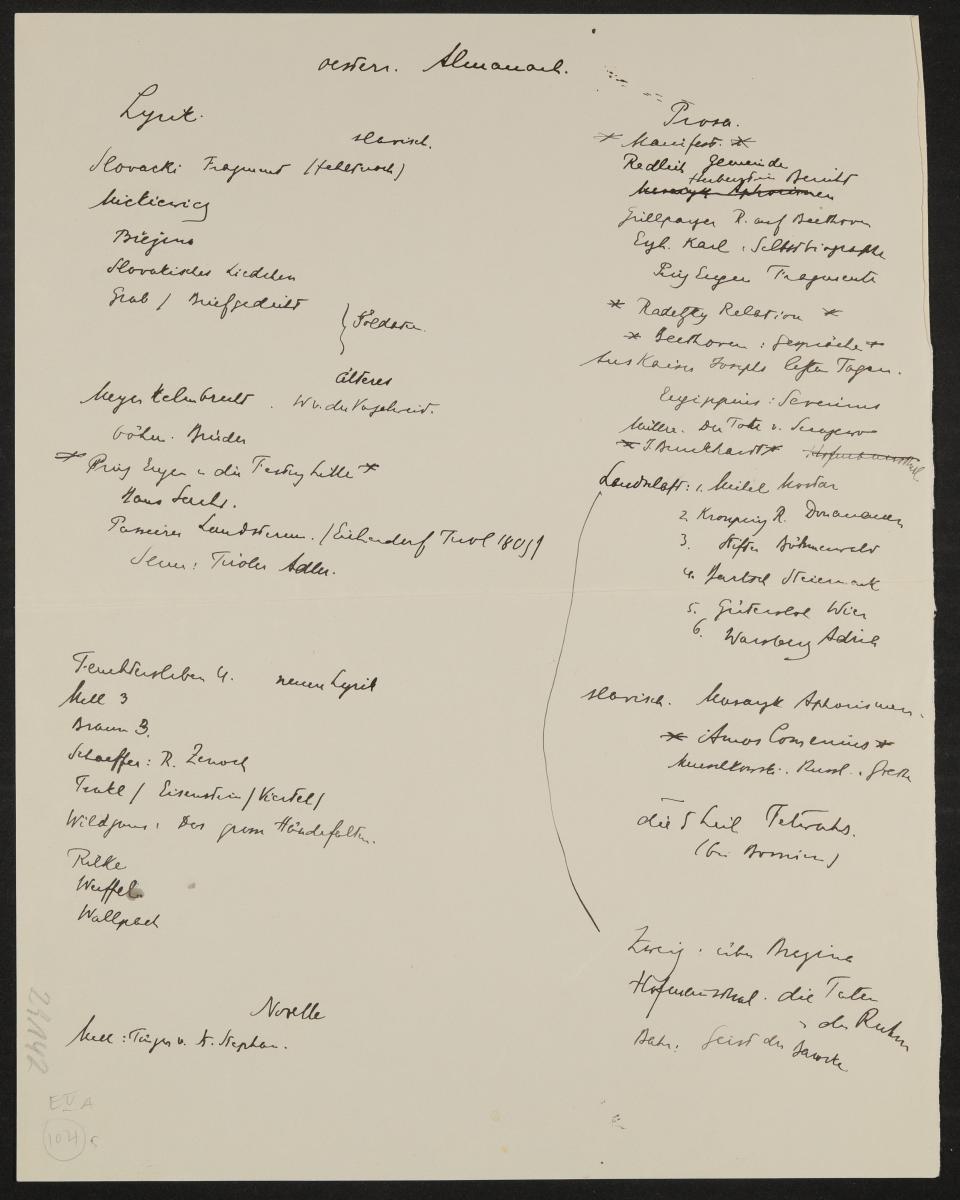 oesterr. Almanach.
Lyrik.
slavisch.
Slovacki Fragment
Mickiewicz
Březina
Slovakisches Liedchen
Grab / Briefgedicht
} Soldaten.
älteres
Meyer Helmbrecht. W v. der Vogelweid.
böhm. Brüder
* Prinz Eugen u die Festung Lille *
Hans Sachs.
Passeirer Landsturm. / Eichendorf Tirol 1809 /
Senn: Tiroler Adler.
Feuchtersleben 4. neuere Lyrik
Mell 3
Braun 3.
Schaeffer: R. Zenoch
Trakl / Eisenstein / Viertel /
Wildgans: Das grosse Händefalten.
Rilke
Werfel.
Wallpach
Novelle
Mell: Tänzer v. St. Stephan.
Prosa.
* Manifest. *
Redlich Gemeinde
Herberstein Bericht
Masaryk Aphorismen
Grillparzer R. auf Beethoven
Erzh. Karl, Selbstbiographie
Prinz Eugen Fragmente
* Radetzky Relation *
* Beethoven: Gespräche *
Aus Kaiser Josephs letzten Tagen.
Eugippius: Severinus
Müller. Der Tote v. Serajewo
* J. Burckhardt * Hofmannsthal
Landschaft: 1. Michel Mostar
2. Kronprinz R. Donauauen
3. Stifter Böhmerwald
4. Bartsch Steiermark
5. Gütersloh Wien
6. Warsberg Adria
slavisch. Masaryk Aphorismen.
* Amos Comenius *
Mereschkowski. Russl.
die 5
Zweig. über Brezina
Hofmannsthal. die Taten
u der Ruhm
Bahr: Geist des Barocke
24142
E IV A